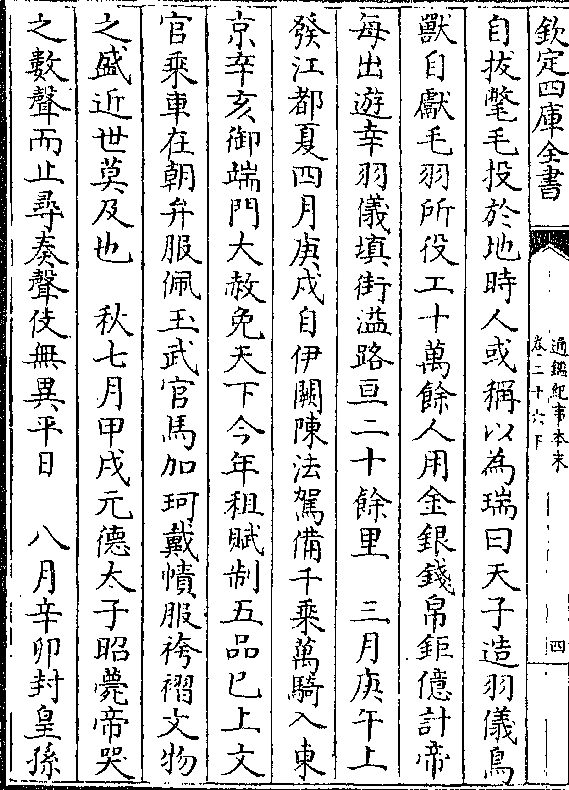 欽定四庫全書
通鑑紀事本末
卷二十六下
四
自拔氅毛投於地時人或稱以為瑞曰天子造羽儀鳥
獸自獻毛羽所役工十萬餘人用金銀錢帛鉅億計帝
每出遊幸羽儀填街溢路亘二十餘里　三月庚午上
發江都夏四月庚戌自伊闕陳法駕備千乘萬騎入東
京辛亥御端門大赦免天下今年租賦制五品已上文
官乘車在朝弁服佩玉武官馬加珂戴幘服袴褶文物
之盛近世莫及也　秋七月甲戌元德太子昭薨帝哭
之數聲而止尋奏聲伎無異平日　八月辛卯封皇孫